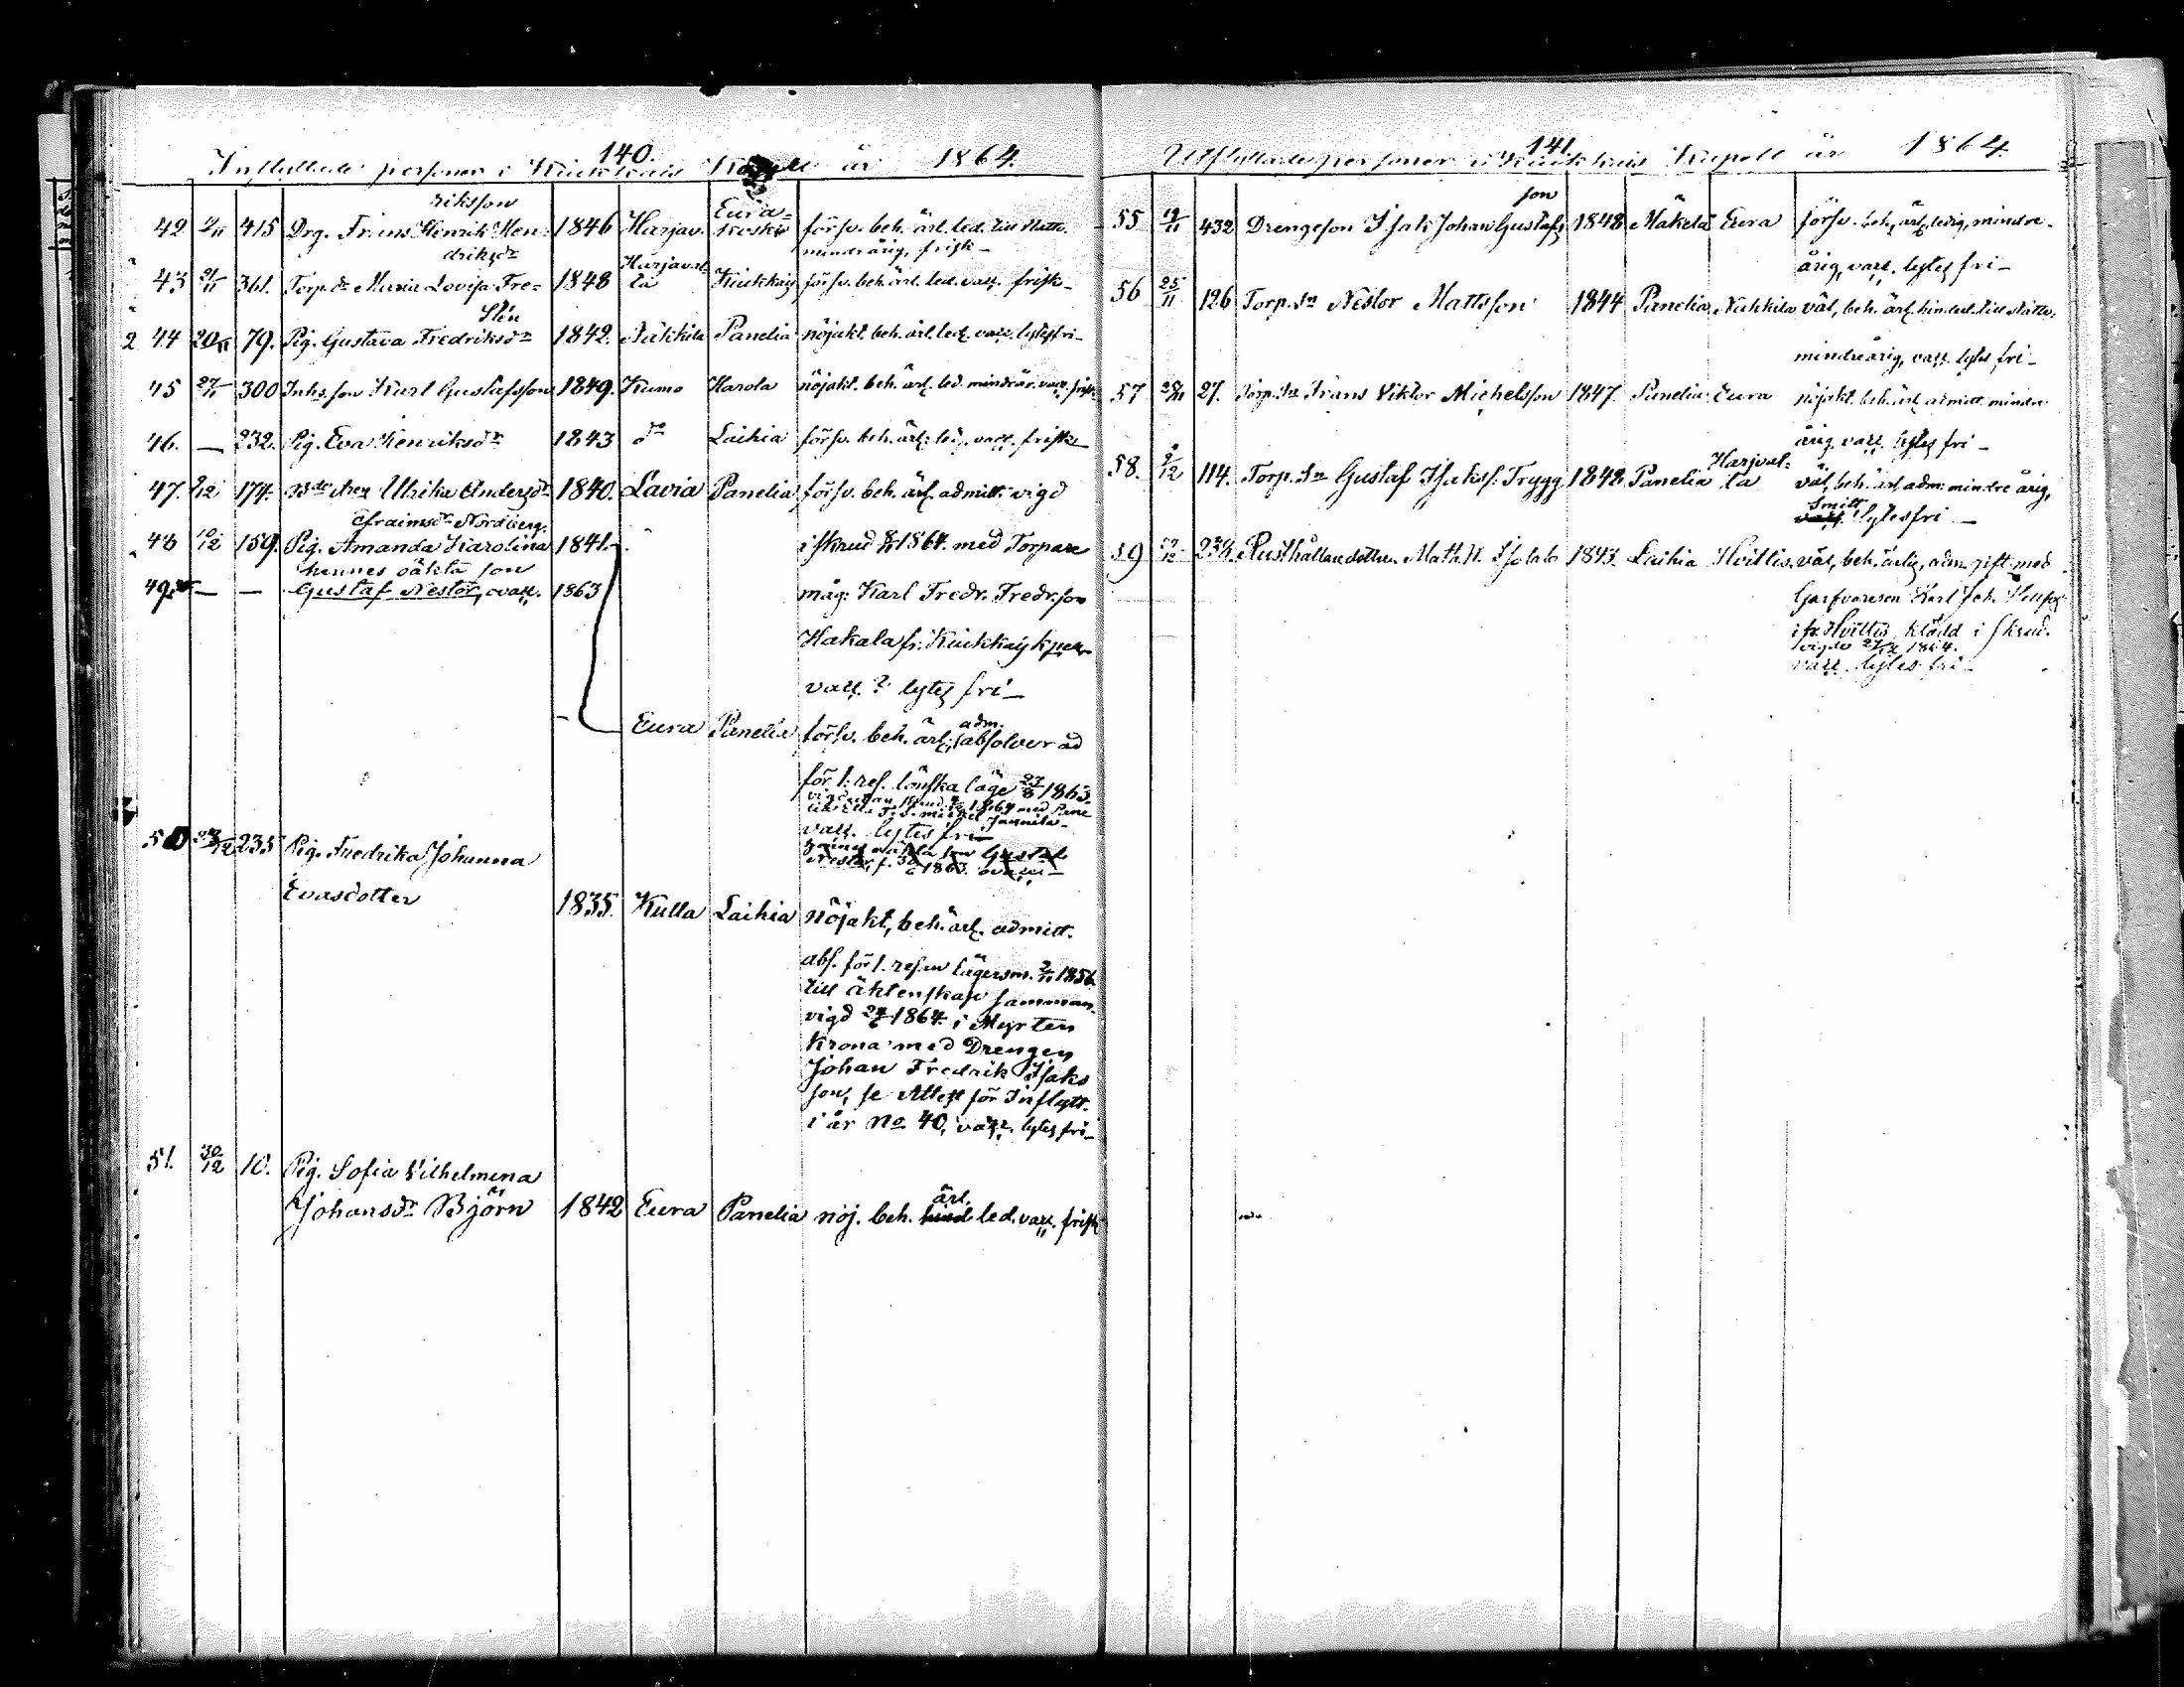 140.
Inflyttade personer i Kiukkais Kapell år 1864.
riksson
42 2/11 415 Drg. Frans Henrik Hen- 1846 Harjav. Eura-
koski försv. beh. ärl. led. till Nattv.
mindreårig, frisk_
driksdr
43 21/11 361. Torp.dr Maria Lovisa Fre= 1848 Harjaval-
la Kiukkay försv. beh. ärl. led. vacc. frisk_
Slén
44 20/11 79. Pig. Gustava Fredriksdr 1842. Nakkila Panelia nöjakt. beh. ärl. led. vacc. lytesfri_
45 27/11 300 Inhs. son Karl Gustafsson 1849. Kumo Harola nöjakt. beh. ärl. led. mindreår. vacc. frisk
46. — 232. Pig. Eva Henriksdr 1843 do Laihia försv. beh. ärl. led. vacc. frisk_
47. 174. Ulrika Andersdr 1840. Lavia Panelia försv. beh. ärl. admitt. vigd
Efraimsdr Nordberg.
48 159. Pig. Amanda Karolina 1841. i skrud 1864. med Torpare
hennes oäkta son
49. — — Gustaf Nestor, ovacc. 1863 måg. Karl Fredr. Fredrson
Hakala fr. Kiukkay k
vacc. ? lytes fri_
Eura Panelia försv. beh. ärl. adm. absolverad
för 1. res. lönska läge 27/8 1863.
vacc. lytes fri
hennes oäkta son Gustaf
Nestor, f. 1863. ovacc._
50 23/12 235 Pig. Fredrika Johanna
Evasdotter 1835. Kulla Laihia nöjakt, beh. ärl. admitt.
abs. för 1. resan lägersm. 2/11 1856
till äktenskap samman-
vigd 24/6 1864. i Myrten
Krona med Drengen
Johan Fredrik Isaks
son, se Attest för Inflytt.
i år No 40, vacc. lytes fri_
51. 30/12 10. Pig. Sofia Vilhelmina
Johansdr Björn 1842 Eura Panelia nöj. beh. ärl. led. vacc. frisk
141.
Utflyttade personer i Kiukkais Kapell år 1864.
son
55 432 Drengeson Isak Johan Gustafs 1848 Mäkelä Eura försv. beh. ärl. ledig, mindre-
årig, vacc. lytes fri_
56 25/11 126 Torp. Sn Nestor Mattsson 1844 Panelia Nakkila väl, beh. ärl. hind. till Nattv.
mindreårig, vacc. lytes fri_
57 27. Torp. Sn Frans Viktor Michelsson 1847. Panelia Eura nöjakt. beh. ärl. admitt. mindre
årig vacc. lytes fri_
58. 2/12 114. Torp. Sn Gustaf Isakss. Trygg 1842 Panelia Harjaval-
la väl, beh. ärl. adm. mindre årig,
Smitt
vacc. lytesfri_
59 239. Rusthållaredotter Math. H. Isotalo 1843. Laihia Hvittis. väl, beh. ärlig, adm. gift med
Garfvaresen Karl Joh.
i fr. Hvittis, klädd i skrud.
vigde 1864.
vacc. lytes fri_